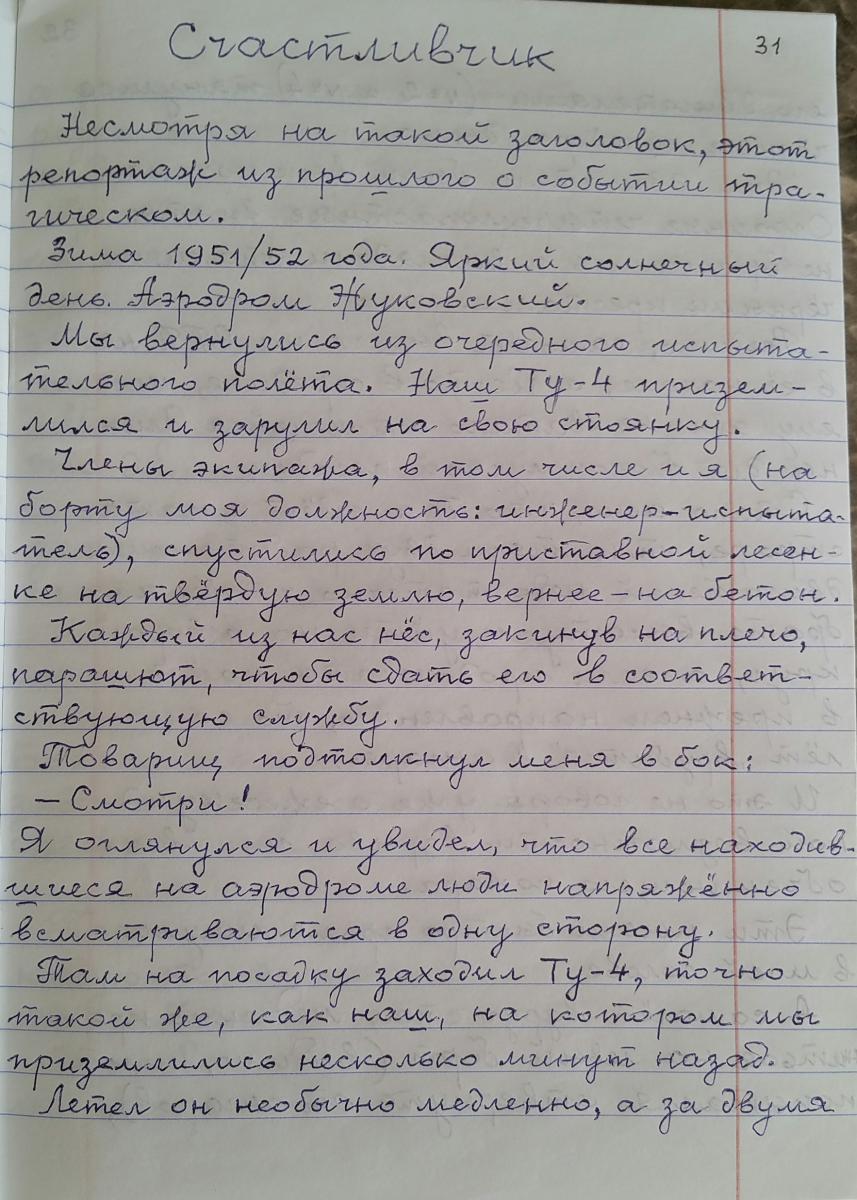 Счастливчик
31
Несмотря на такой заголовок, этот
репортаж из прошлого о событии тра-
гическом.
Зима 1951/52 года. Яркий солнечный
день. Аэродром Жуковский.
Мы вернулись из очередного испыта-
тельного полёта. Наш Ту-4 призем-
лился и зарулил на свою стоянку.
Члены экипажа, в том числе и я (на
борту моя должность: инженер-испыта-
тель), спустились по приставной лесен-
ке на твёрдую землю, вернее – на бетон.
Каждый из нас нёс, закинув на плечо,
парашют, чтобы сдать его в соответ-
ствующую службу.
Товарищ подтолкнул меня в бок:
– Смотри!
Я оглянулся и увидел, что все находив-
шиеся на аэродроме люди напряжённо
всматриваются в одну сторону.
Там на посадку заходил Ту-4, точно
такой же, как наш, на котором мы
приземлились несколько минут назад.
Летел он необычно медленно, а за двумя